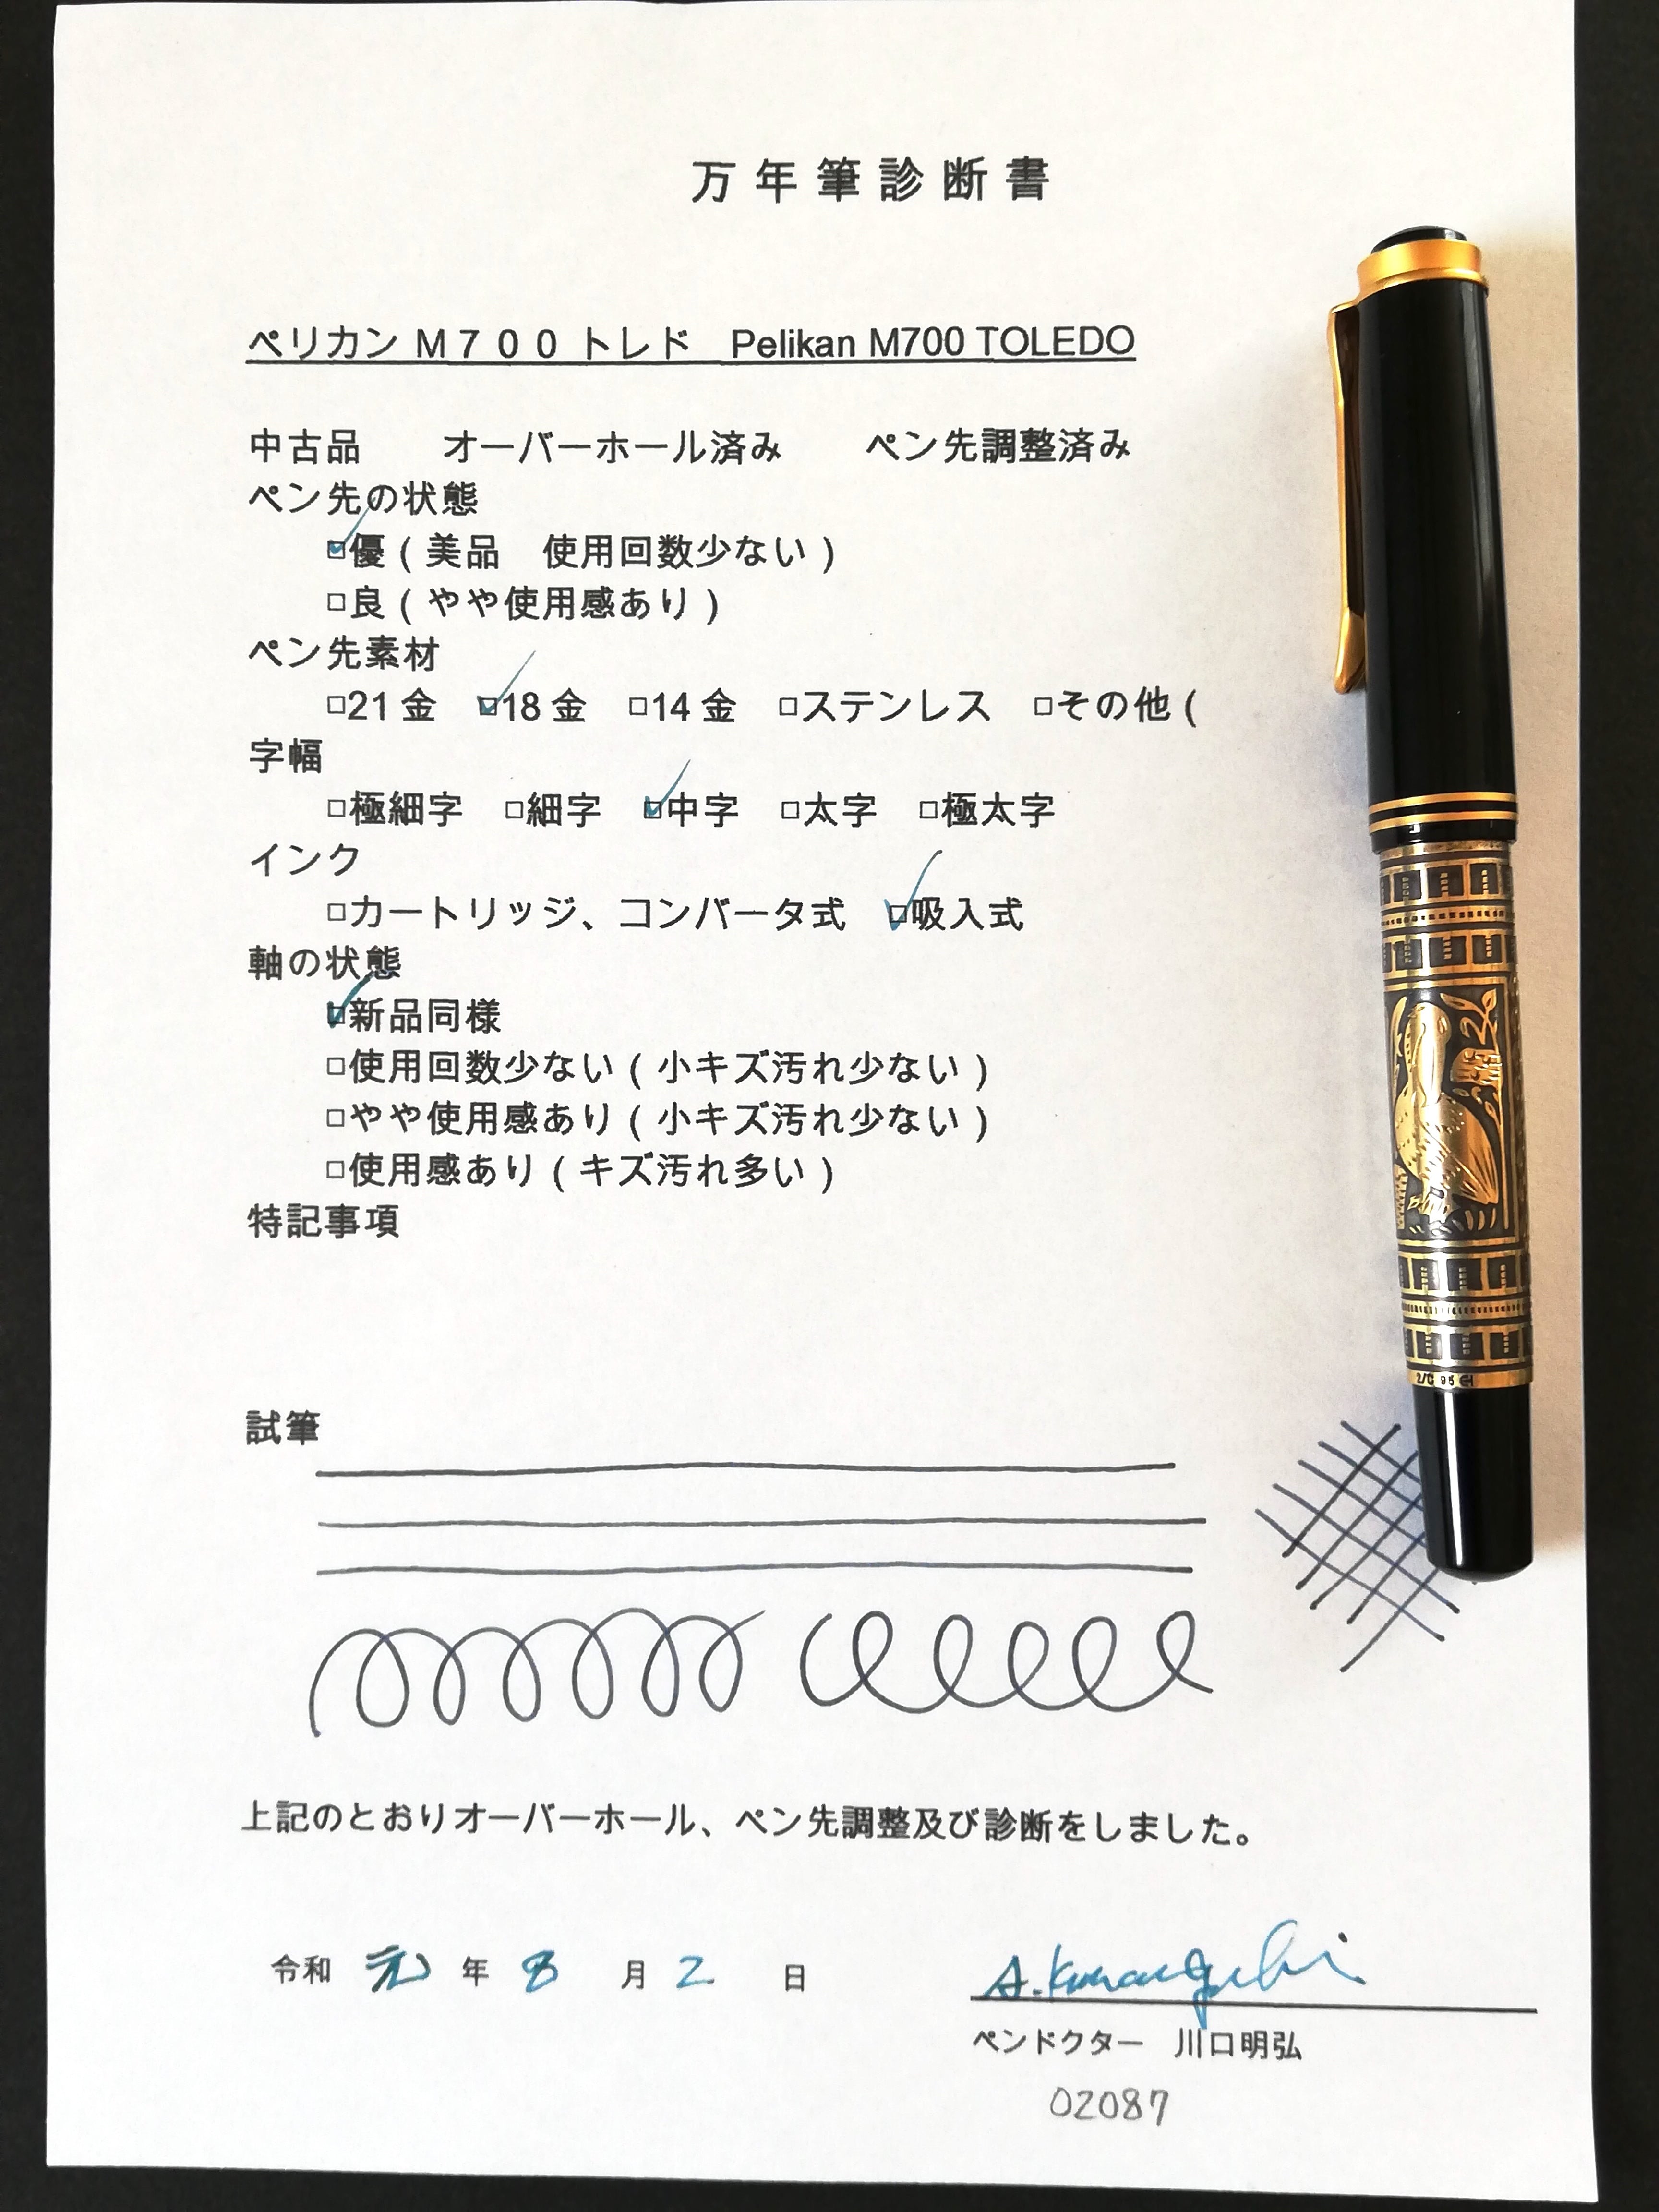 万年筆診断書
ペリカン M700 トレド Pelikan M700 TOLEDO
中古品 オーバーホール済み ペン先調整済み
ペン先の状態
☑優(美品 使用回数少ない)
□良(やや使用感あり)
ペン先素材
□21金 ☑18金 □14金 □ステンレス □その他(
字幅
□極細字 □細字 ☑中字 □太字 □極太字
インク
□カートリッジ、コンバータ式 ☑吸入式
軸の状態
☑新品同様
□使用回数少ない(小キズ汚れ少ない)
□やや使用感あり(小キズ汚れ少ない)
□使用感あり(キズ汚れ多い)
特記事項
試筆
上記のとおりオーバーホール、ペン先調整及び診断をしました。
令和 元 年 8 月 2 日
A.Kawaguchi
ペンドクター 川口明弘
02087